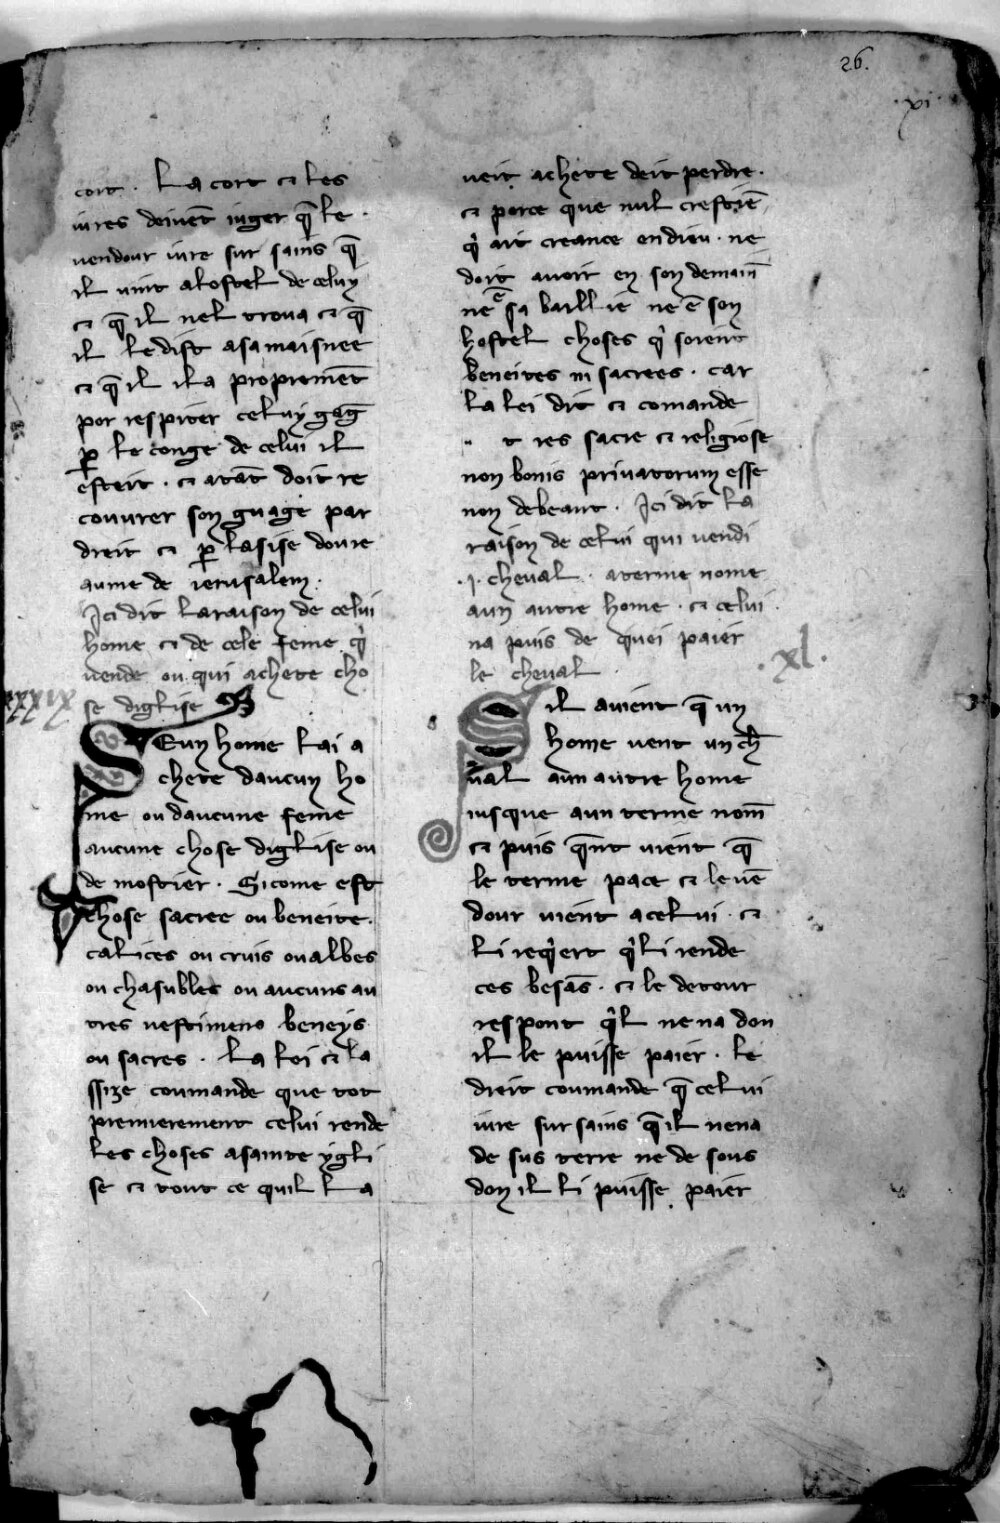 26.
.xi.
cort . La cort ⁊ les
iures deiuēt iuger q̄ le .
vendour iure sur sains q̄
il uint al ostel de celuy
⁊ q̄ il nel troua ⁊ q̄
il le dist a sa maisnee
⁊ q̄ il ila propremēt
por respiter celuy gaḡ
ꝑ le conge de celui il
esteit . ⁊ atāt doit re
couurer son guage par
dreit ⁊ ꝑ lasise dou re
aume de ierusalem .
Ici dit la raison de celui
home ⁊ de cele feme q̍
uende ou qui achete cho
se diglise
xxxix
SE un home lai a
chete daucun ho
me ou daucune feme
aucune chose diglise ou
de mostier . Si come est
chose sacree ou beneite .
calices ou cruis ou albes
ou chasubles ou aucuns au
tres uestimens beneys
ou sacres . La lei ⁊ la
ssize coumande que tot
premierement celui rende
les choses a sainte ygli
se ⁊ tout ce quil l a
ueit achete deit perdre .
⁊ porce que nul crestiē
q̍ ait creance en dieu . ne
doit auoir en son demain̄
ne ē sa baillie ne ē son
hostel choses q̍ soient
beneites ni sacrees . car
la lei dit ⁊ comande
t res sacre ⁊ religiose
non bonis priuatorum esse
non debeant . Ici dit la
raison de celui qui uendi
.i. cheual . a terme nome
a un autre home . ⁊ celui .
na puis de quei paier
le cheual .
.xl.
Sil auient q̄ un
home uent un ch̄
ual a un autre home
iusque a un terme nom̄
⁊ puis q̄nt uient q̄
le terme pace ⁊ le uē
dour uient a celui . ⁊
li req̍ert q̍ li rende
ces besās . ⁊ le detour
respont q̍l ne na don
il le puisse paier . le
dreit coumande q̄ celui
iure sur sains q̄ il nena
de sus terre ne de sous
don il li puisse paier